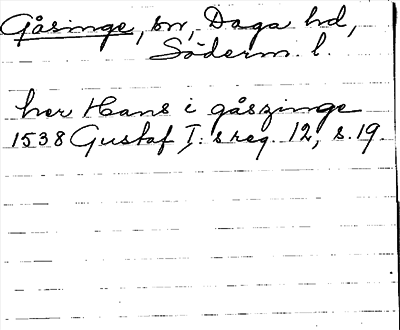 Gåsinge, sn, Daga hd,
Söderm. l.
her Hans i gåszinge
1538 Gustaf I:s reg. 12, s. 19.